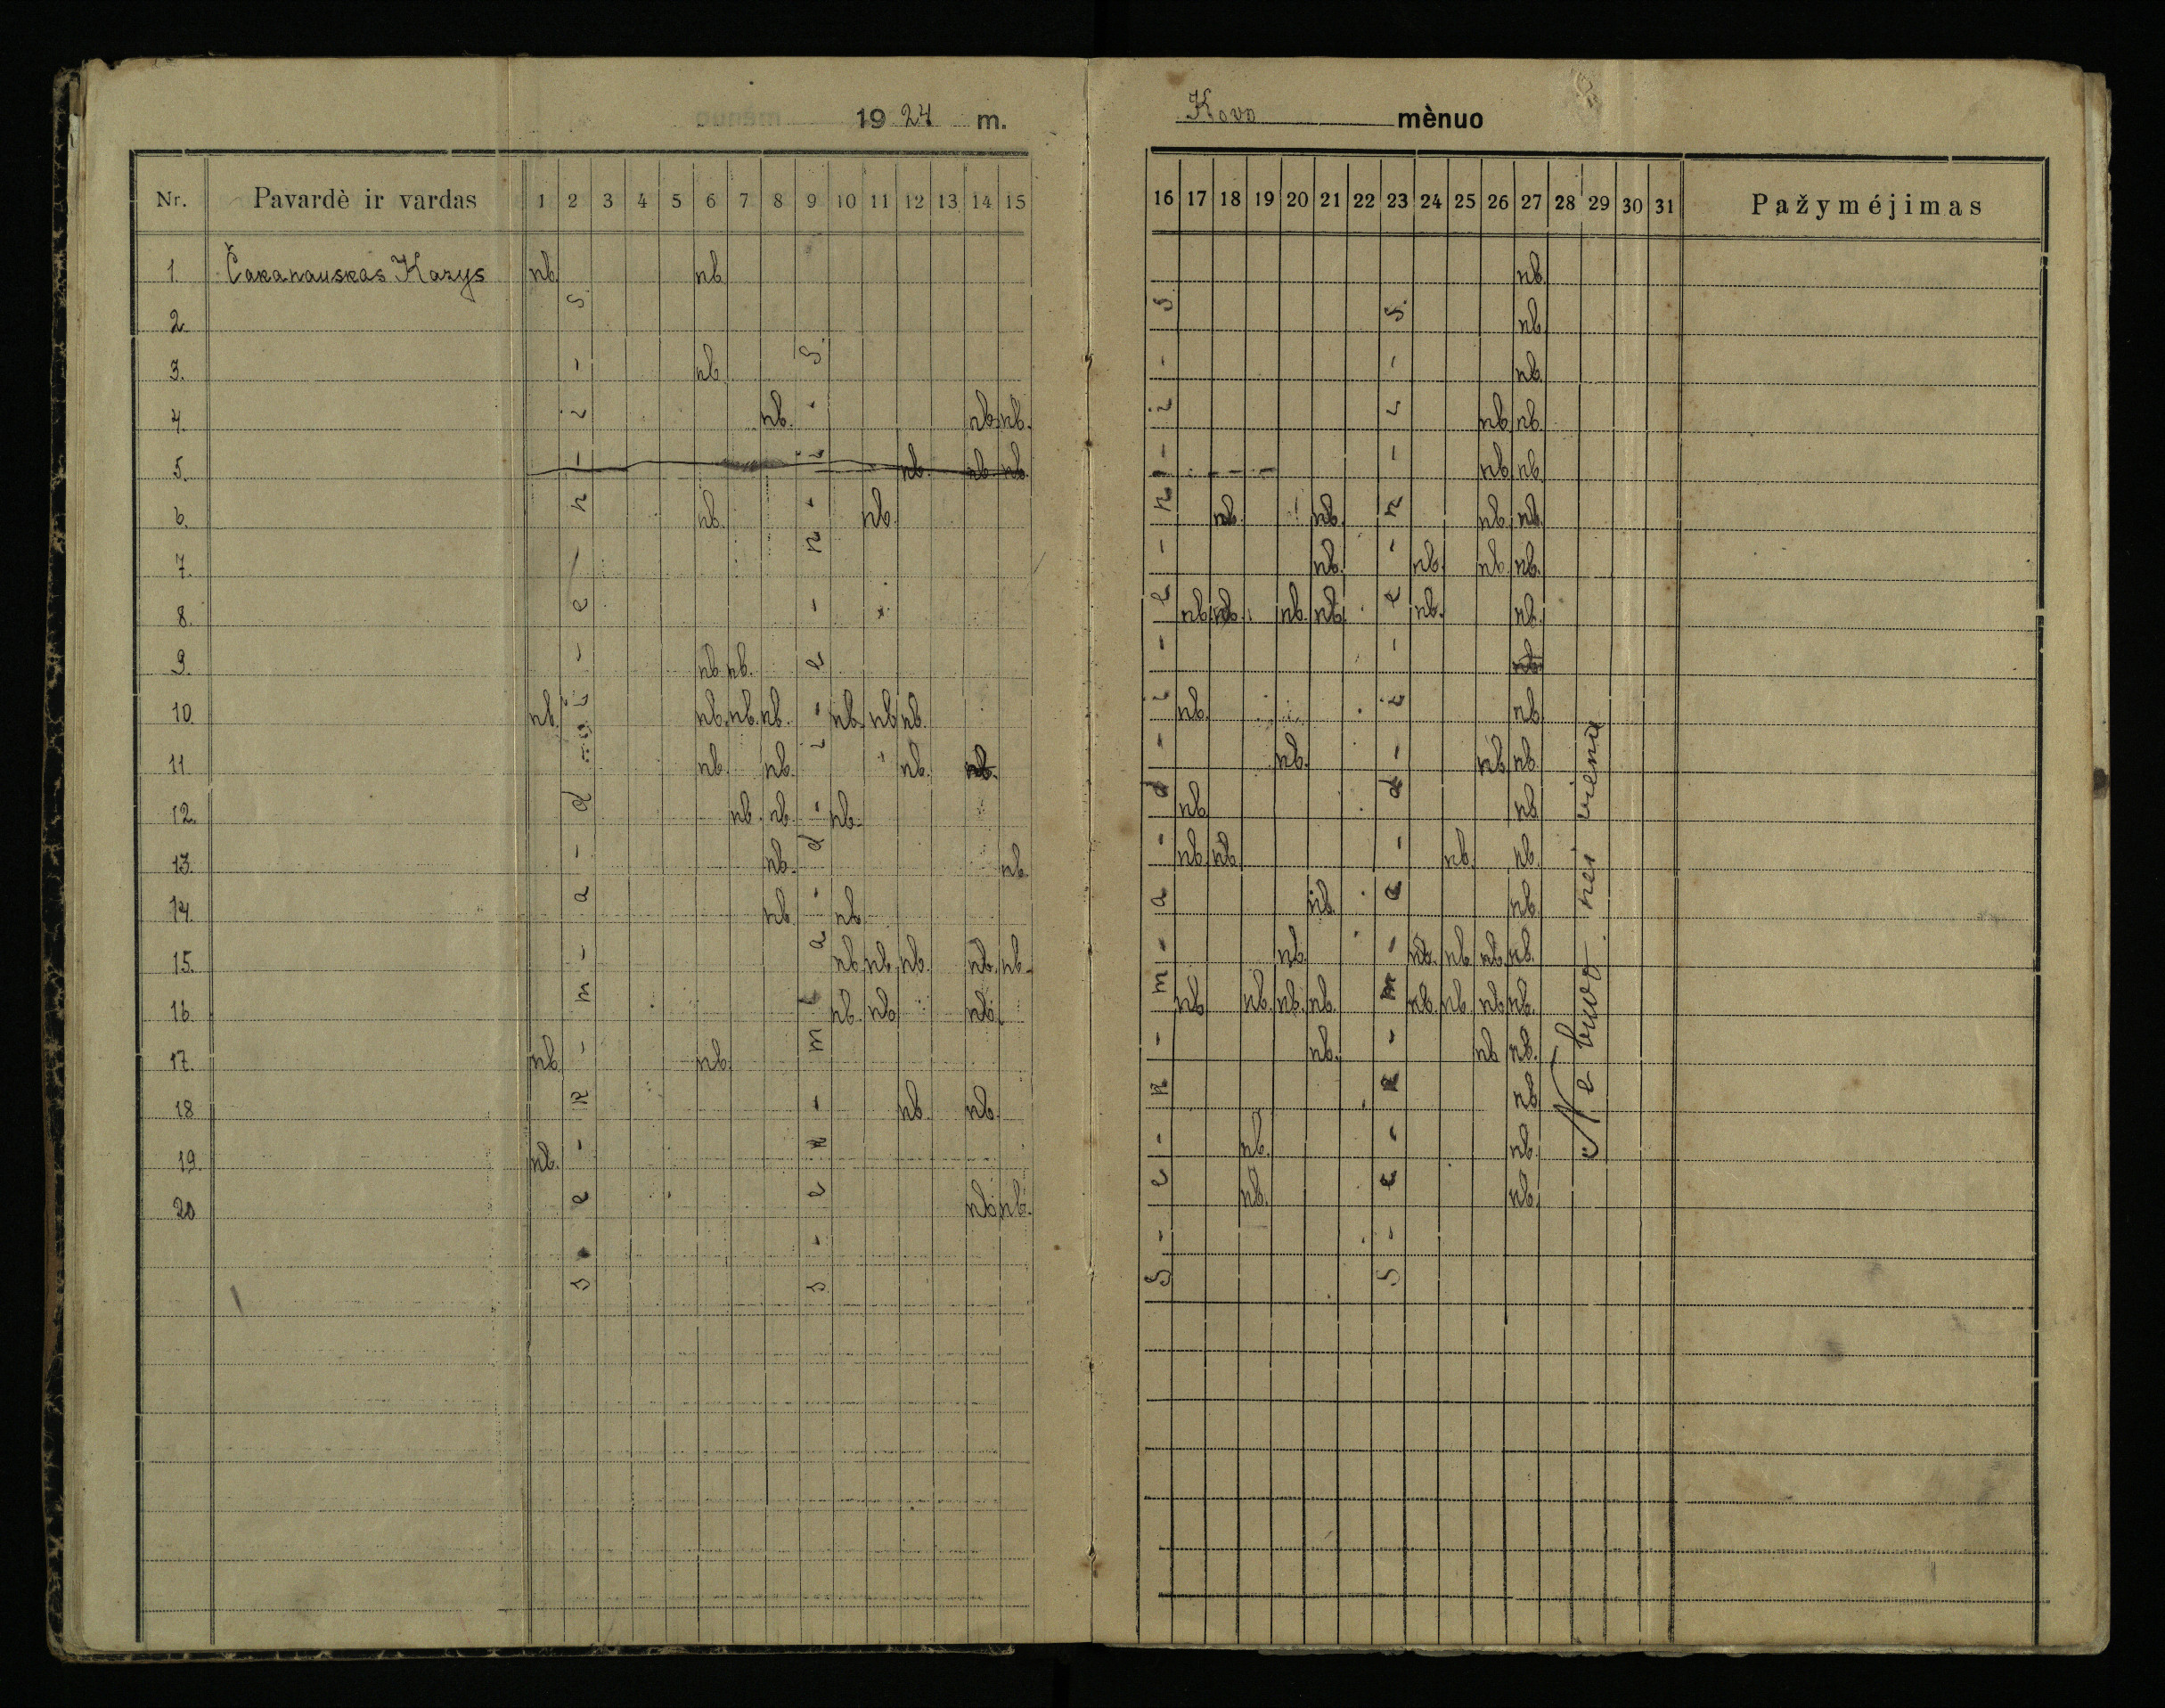 1924 m.
Kovo mėnuo
Nr. Pavardė ir vardas 1 2 3 4 5 6 7 8 9 10 11 12 13 14 15
16 17 18 19 20 21 22 23 24 25 26 27 28 29 30 31 Pažymėjimas
1. Čakanauskas Kazys nb. nb. nb.
2. nb.
3. nb. nb.
4. nb. nb. nb. nb. nb.
5. nb. nb. nb. nb. nb.
6. nb. nb. nb. nb. nb. nb.
7. nb. nb. nb. nb.
8. nb. nb. nb. nb. nb. nb.
9. nb. nb. nb.
10 nb. nb. nb. nb. nb. nb. nb. nb. nb.
11 nb. nb. nb. nb. nb. nb. nb.
12. nb. nb. nb. nb. nb.
13. nb. nb. nb. nb. nb. nb.
14. nb. nb. nb. nb.
15. nb. nb. nb. nb. nb. nb. nb. nb. nb. nb.
16. nb. nb. nb. nb. nb. nb. nb. nb. nb. nb. nb.
17. nb. nb. nb. nb. nb.
18 nb. nb. nb.
19. nb. nb. nb.
20 nb. nb. nb. nb.
S-e-k-m-a-d-i-e-n-i-s.
s-e-k-m-a-d-i-e-n-i-s.
S-e-k-m-a-d-i-e-n-i-s.
S-e-k-m-a-d-i-e-n-i-s.
Nebuvo nei viena